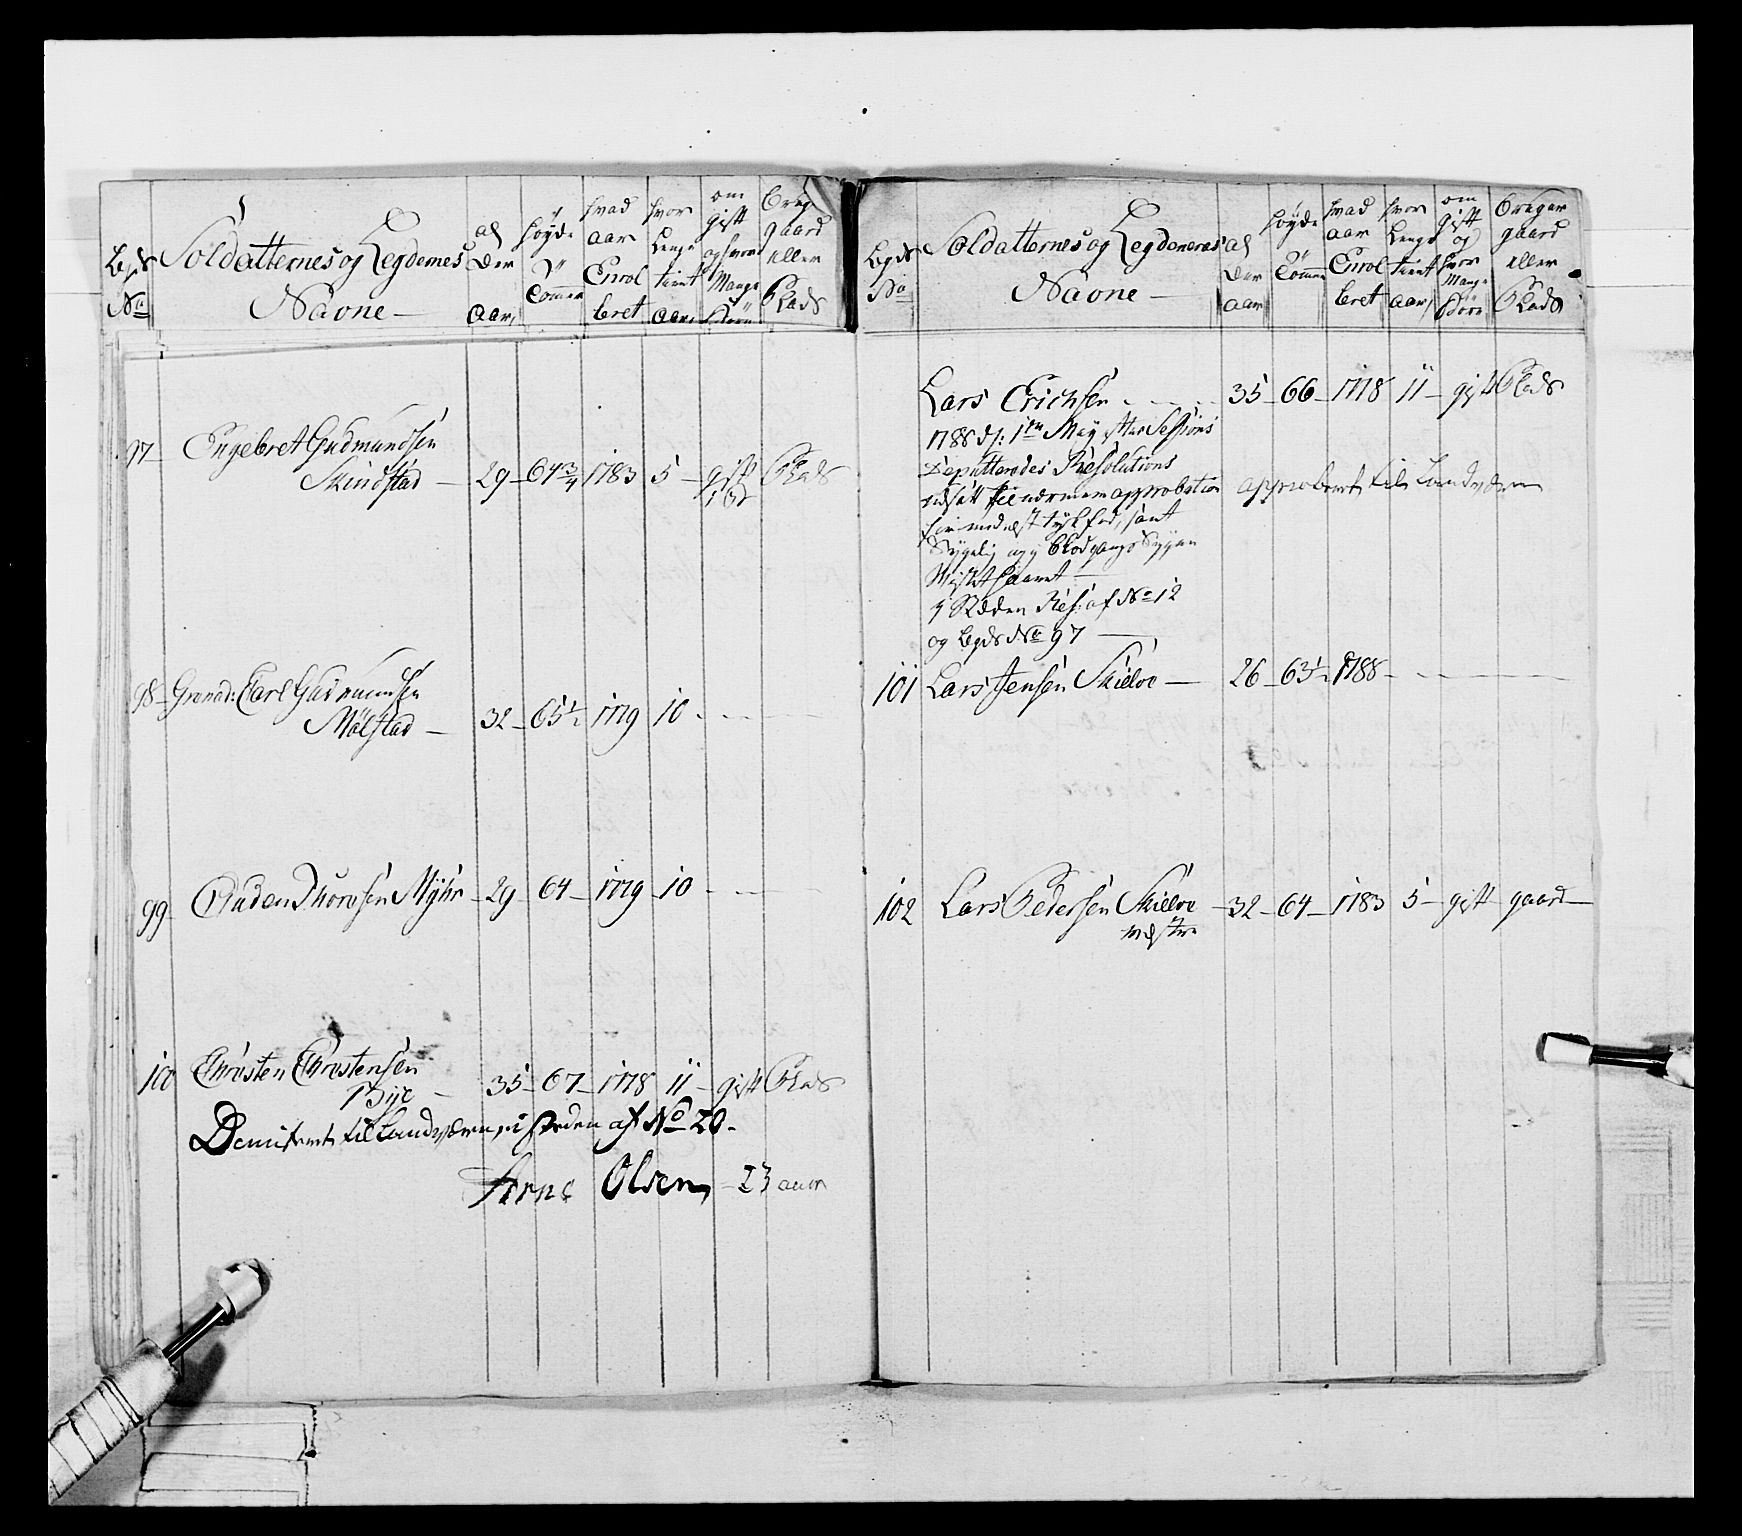 Legds No
Soldatternes og Legdernes Navne
al der Aar
høyde Tommer
hvad aar Enrol leret
hvor Længe tient Aar
om gift og hvor Mange Børn
gaard eller Plads
97 Engebret Gudmundsen
Skindstad — 29 – 64 3/4 1783 5 – gift Plads
98 – Grenad: Carl Gudmundsen
Mølstad — 32 – 65 1/2 1779 10
99 Auden Thoresen Myhr – 29 – 64 – 1779 – 10
100 Throsten Throstensen
Bye – 35 – 67 – 1778 11 – gift Plads
Demiteret til Landværn, i steden af No 20.
Arne Olsen, – 23 aar
Legds No
Soldatternes og Legdernes Navne
al der aar
høyde Tommer
hvad aar Enrol leret
hvor Længe tient aar
om gift og hvor Mange Børn
gaard eller Plads
Lars Erichsen 35 – 66 – 1778 11 – gift Plads
1788 d: 1te May efter Sessions
Deputteredes Resolutions
udsat til nærmere approbation approberet til Landværn
Sygelig og Blodgangs Sygen
i Stæden Res: af No 12
og Legds No 97
101 Lars Jensen Skielve — 26 – 63 1/2 1788 –
102 Lars Pedersen Skielve – 32 – 64 – 1783 5 – gift gaard
vestre